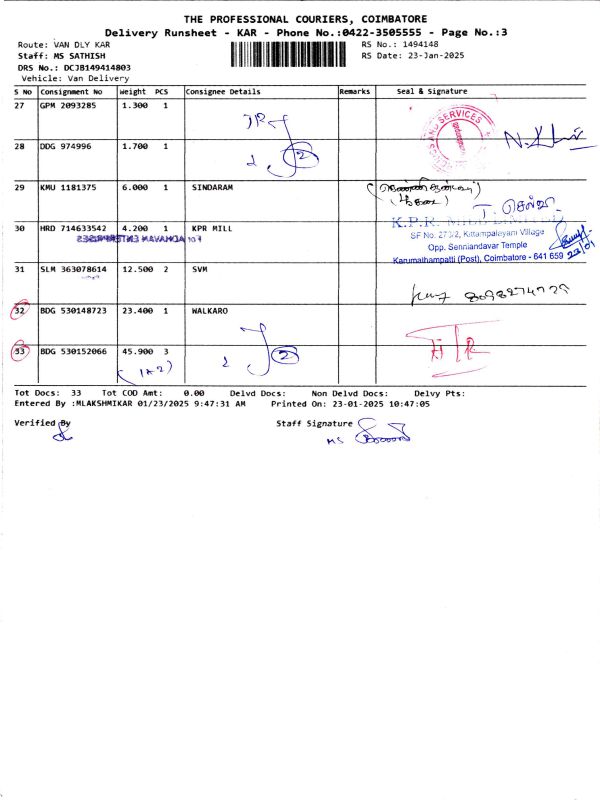 THE PROFESSIONAL COURIERS, COIMBATORE
Delivery Runsheet - KAR - Phone No.:0422-3505555 - Page No.:3
Route: VAN DLY KAR RS No.: 1494148
Staff: MS SATHISH RS Date: 23-Jan-2025
DRS No.: DCJB149414803
Vehicle: Van Delivery
S No Consignment No Weight PCS Consignee Details Remarks Seal & Signature
27 GPM 2093285 1.300 1
28 DDG 974996 1.700 1
2
29 KMU 1181375 6.000 1 SINDARAM
30 HRD 714633542 4.200 1 KPR MILL
For ADHAVAN ENTERPRISES
K.P.R. MILL LIMITED
SF No: 273/2, Kittampalayam Village
Opp. Senniandavar Temple
Karumathampatti (Post), Coimbatore - 641 659
31 SLM 363078614 12.500 2 SVM
32 BDG 530148723 23.400 1 WALKARO
33 BDG 530152066 45.900 3
(1*2)
2
Tot Docs: 33 Tot COD Amt: 0.00 Delvd Docs: Non Delvd Docs: Delvy Pts:
Entered By :MLAKSHMIKAR 01/23/2025 9:47:31 AM Printed On: 23-01-2025 10:47:05
Verified By Staff Signature
MS